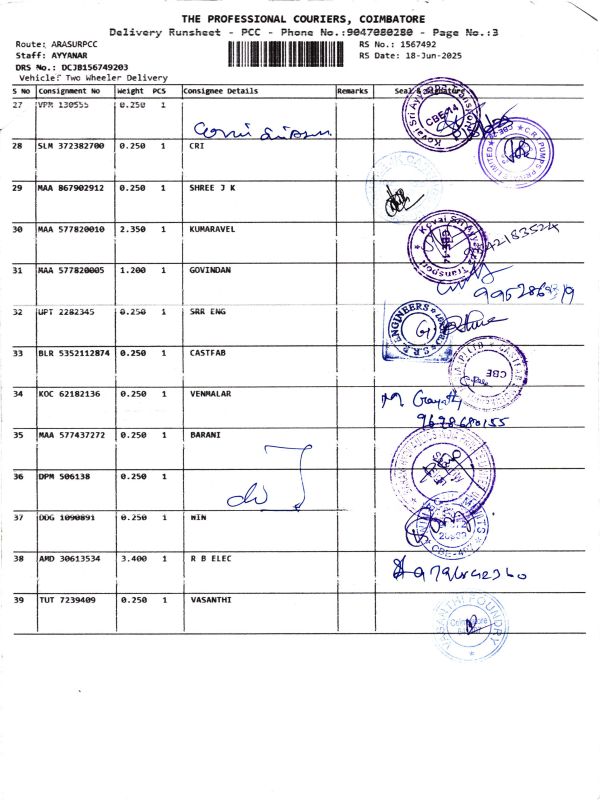 THE PROFESSIONAL COURIERS, COIMBATORE
Delivery Runsheet - PCC - Phone No.:9047080280 - Page No.:3
Route: ARASURPCC RS No.: 1567492
Staff: AYYANAR RS Date: 18-Jun-2025
DRS No.: DCJB156749203
Vehicle: Two Wheeler Delivery
S No Consignment No Weight PCS Consignee Details Remarks Seal & Signature
27 VPM 130555 0.250 1
Kovai Sri Ayyappa Transport CBE-14
28 SLM 372382700 0.250 1 CRI
C.R.I. PUMPS PRIVATE LIMITED
29 MAA 867902912 0.250 1 SHREE J K
30 MAA 577820010 2.350 1 KUMARAVEL
Kovai Sri Ayyappa Transport CBE-14
31 MAA 577820005 1.200 1 GOVINDAN
32 UPT 2282345 0.250 1 SRR ENG
S.R.R. ENGINEERS
33 BLR 5352112874 0.250 1 CASTFAB
CBE
34 KOC 62182136 0.250 1 VENMALAR
M Gayathri
9698680155
35 MAA 577437272 0.250 1 BARANI
36 DPM 506138 0.250 1
37 DDG 1090891 0.250 1 WIN
38 AMD 30613534 3.400 1 R B ELEC
39 TUT 7239409 0.250 1 VASANTHI
VASANTHI FOUNDRY
Coimbatore